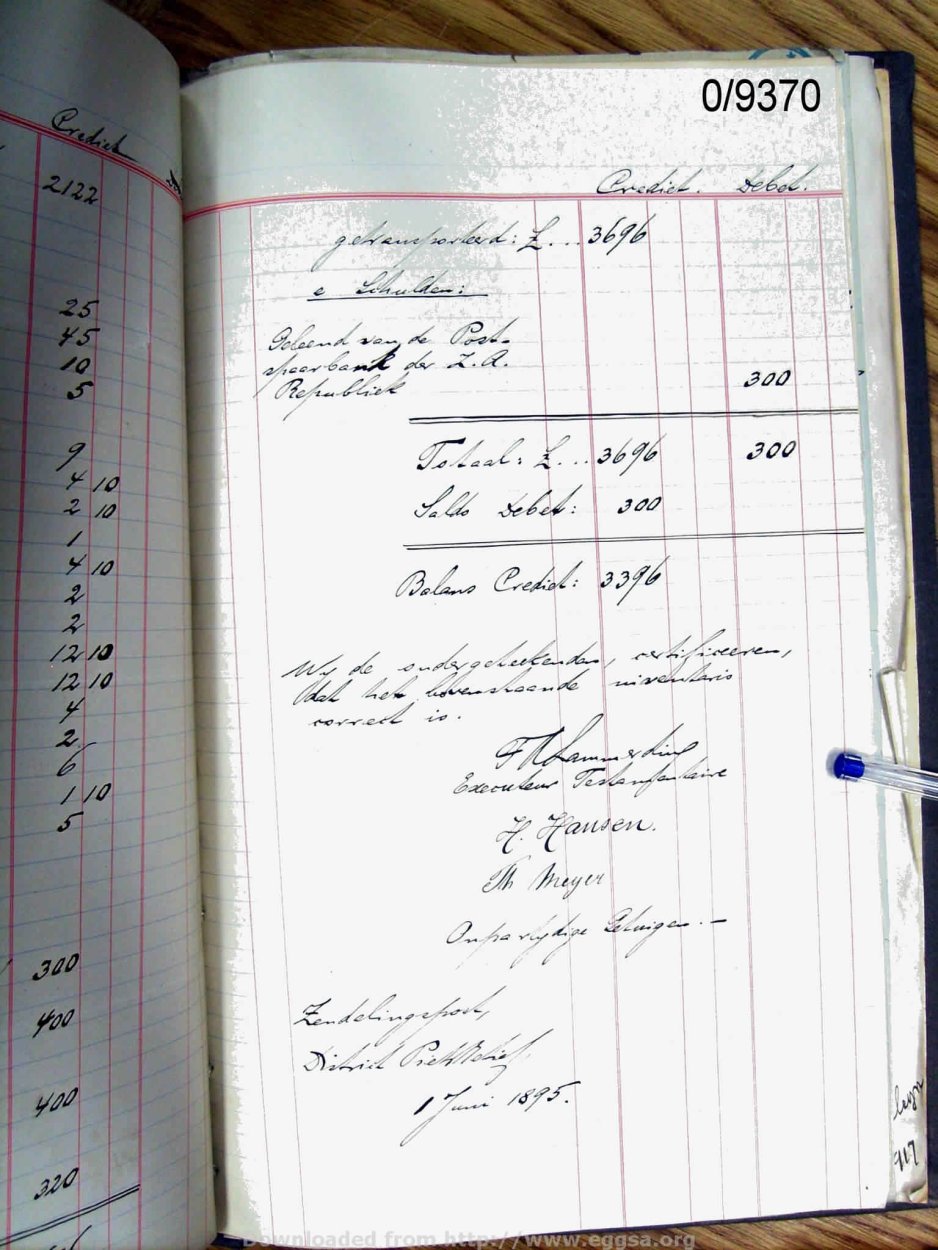 Crediet
2122
25
45
10
5
9
4 10
2 10
1
4 10
2
2
12 10
12 10
4
2
6
1 10
5
300
400
400
320
0/9370
Crediet. Debet.
getransporteerd: £... 3696
e Schulden:
Geleend van de Post-
spaarbank der Z.A.
Republiek 300
Totaal: £... 3696 300
Saldo Debet: 300
Balans Crediet: 3396
Wij de ondergeteekenden, certificeeren,
dat het bovenstaande inventaris
correct is.
F Lammerding
Executeur Testamentaire
H. Hansen.
Th Meyer
Onpartydige Getuigen. —
Zendelingspost,
District Piet Retief,
1 Juni 1895.
717
Downloaded from http://www.eggsa.org